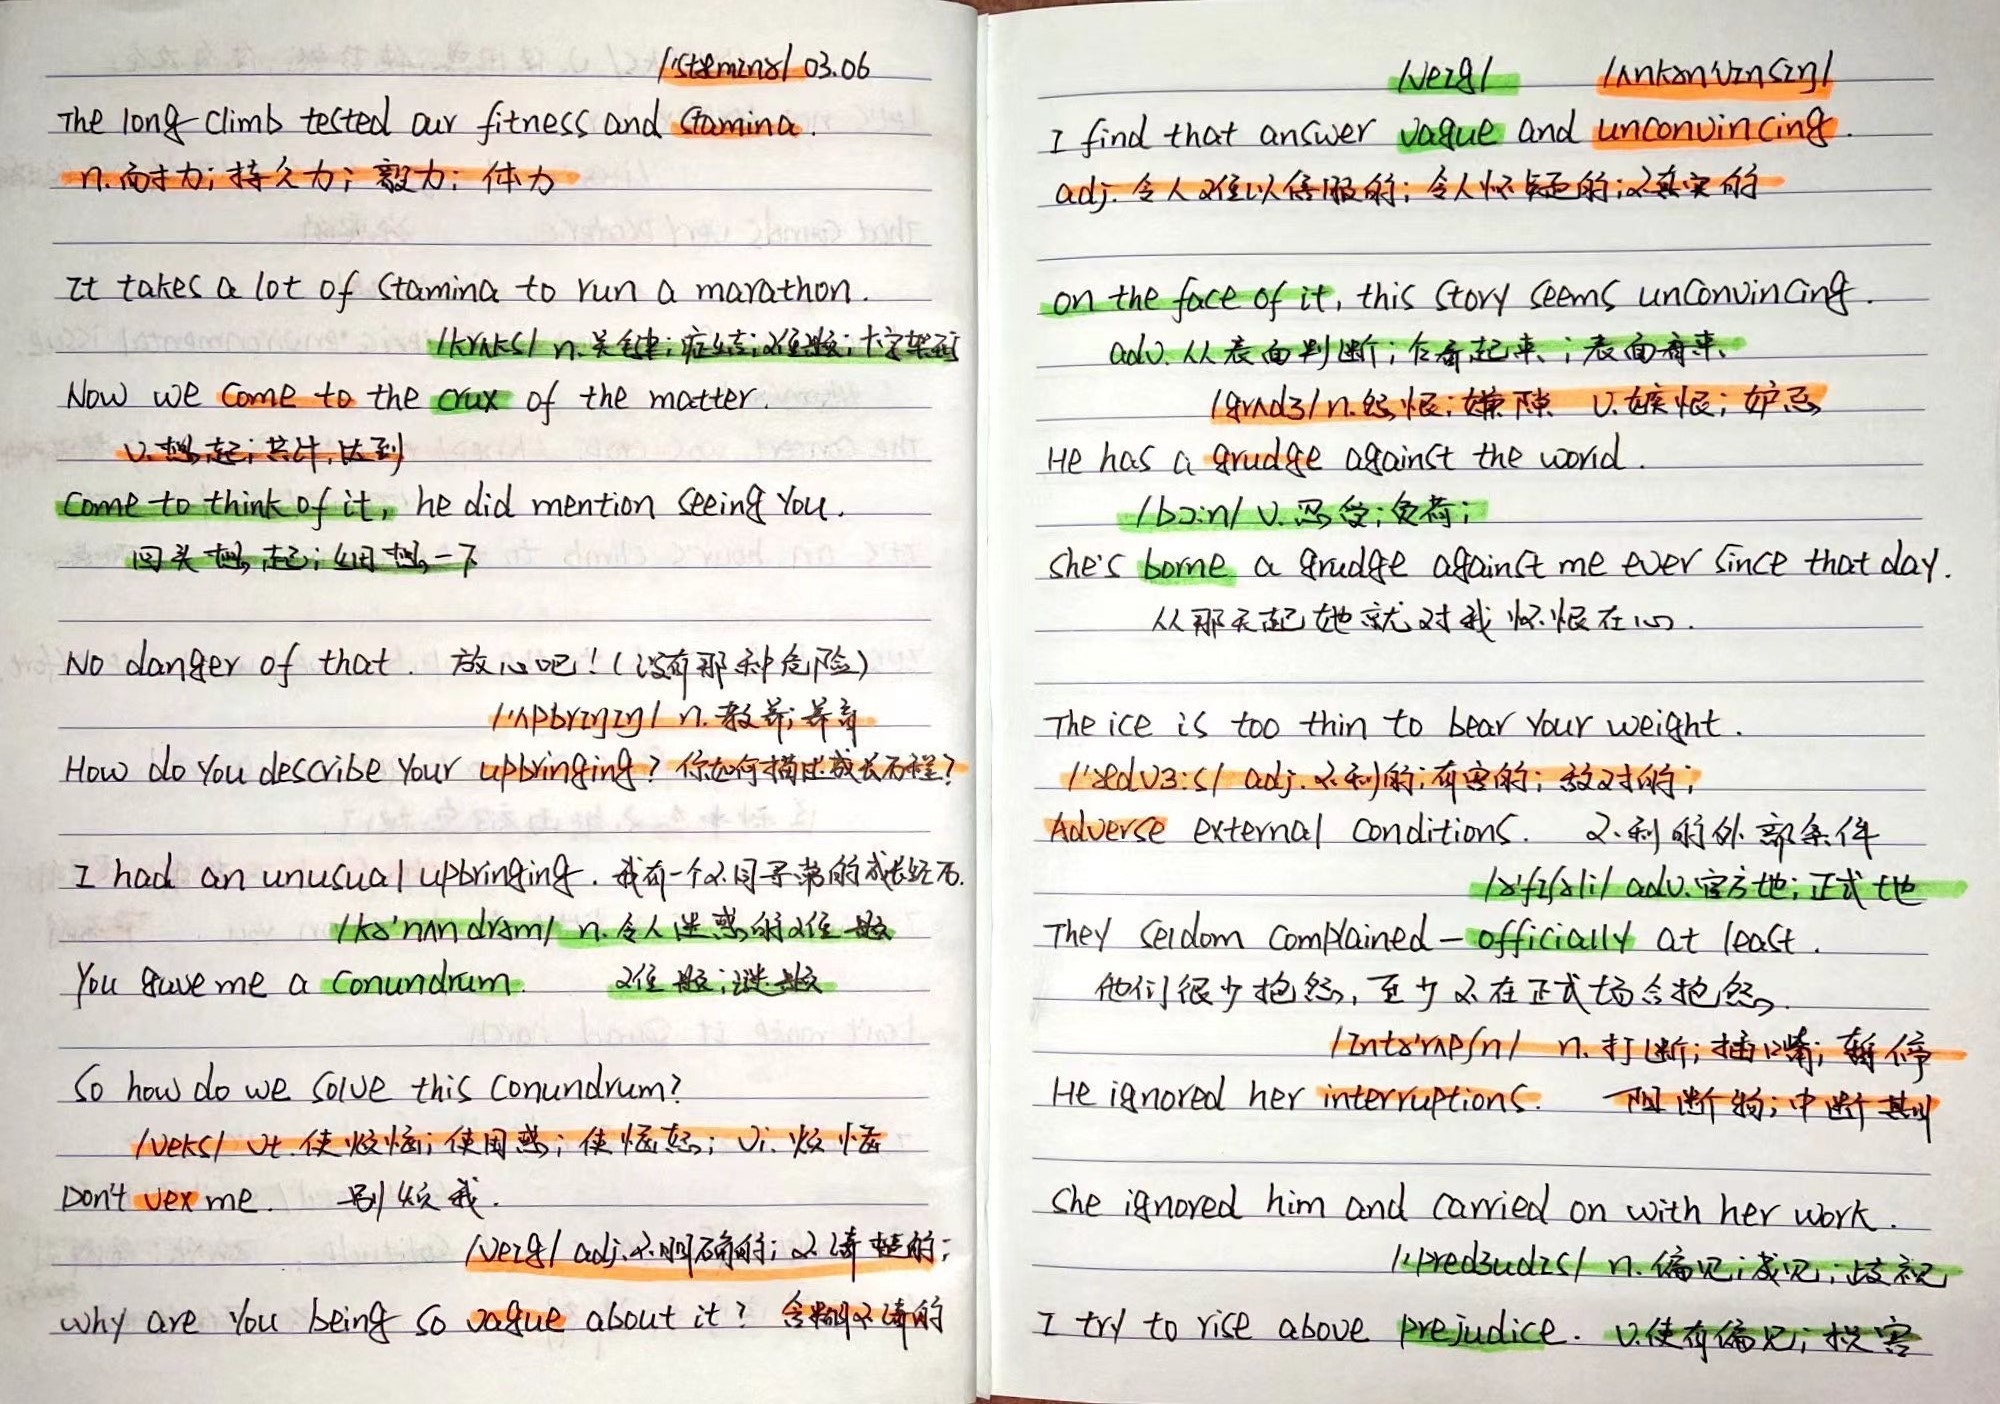 /'stæmɪnə/ 03.06
The long climb tested our fitness and stamina.
n. 耐力; 持久力; 毅力; 体力
It takes a lot of stamina to run a marathon.
/krʌks/ n. 关键; 症结; 难题; 十字架形
Now we come to the crux of the matter.
v. 想起; 共计, 达到
Come to think of it, he did mention seeing you.
回头想起; 细想一下
No danger of that. 放心吧!(没有那种危险)
/'ʌpbrɪŋɪŋ/ n. 教养; 养育
How do you describe your upbringing? 你如何描述成长历程?
I had an unusual upbringing. 我有一个不同寻常的成长经历.
/kə'nʌndrəm/ n. 令人迷惑的难题
You gave me a conundrum. 难题; 谜题
So how do we solve this conundrum?
/veks/ vt. 使烦恼; 使困惑; 使恼怒; vi. 烦恼
Don't vex me. 别烦我.
/veɪg/ adj. 不明确的; 不清楚的;
Why are you being so vague about it? 含糊不清的
/veɪg/ /ʌnkən'vɪnsɪŋ/
I find that answer vague and unconvincing.
adj. 令人难以信服的; 令人怀疑的; 不真实的
on the face of it, this story seems unconvincing.
adv. 从表面判断; 乍看起来; 表面看来
/grʌdʒ/ n. 怨恨; 嫌隙 v. 嫉恨; 妒忌
He has a grudge against the world.
/bɔ:n/ v. 忍受; 负荷;
She's borne a grudge against me ever since that day.
从那天起她就对我怀恨在心.
The ice is too thin to bear your weight.
/'ædvɜ:s/ adj. 不利的; 有害的; 敌对的;
Adverse external conditions. 不利的外部条件
/ə'fɪʃəli/ adv. 官方地; 正式地
They seldom complained - officially at least.
他们很少抱怨, 至少不在正式场合抱怨.
/ɪntə'rʌpʃn/ n. 打断; 插嘴; 暂停
He ignored her interruptions. 阻断物; 中断期
She ignored him and carried on with her work.
/'predʒudɪs/ n. 偏见; 成见; 歧视
I try to rise above prejudice. v. 使有偏见; 损害